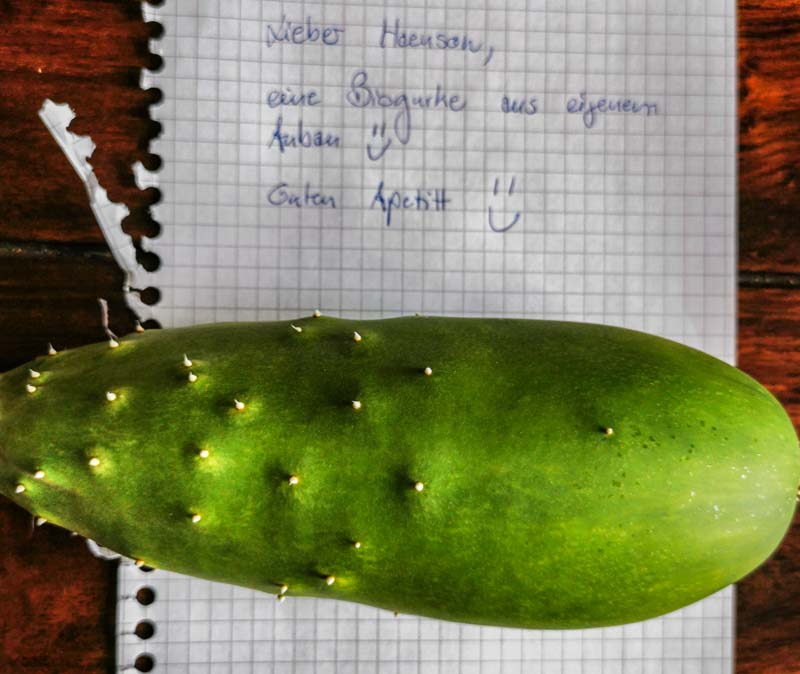 Lieber Haenson,
eine Biogurke aus eigenem
Anbau
Guten Apetitt